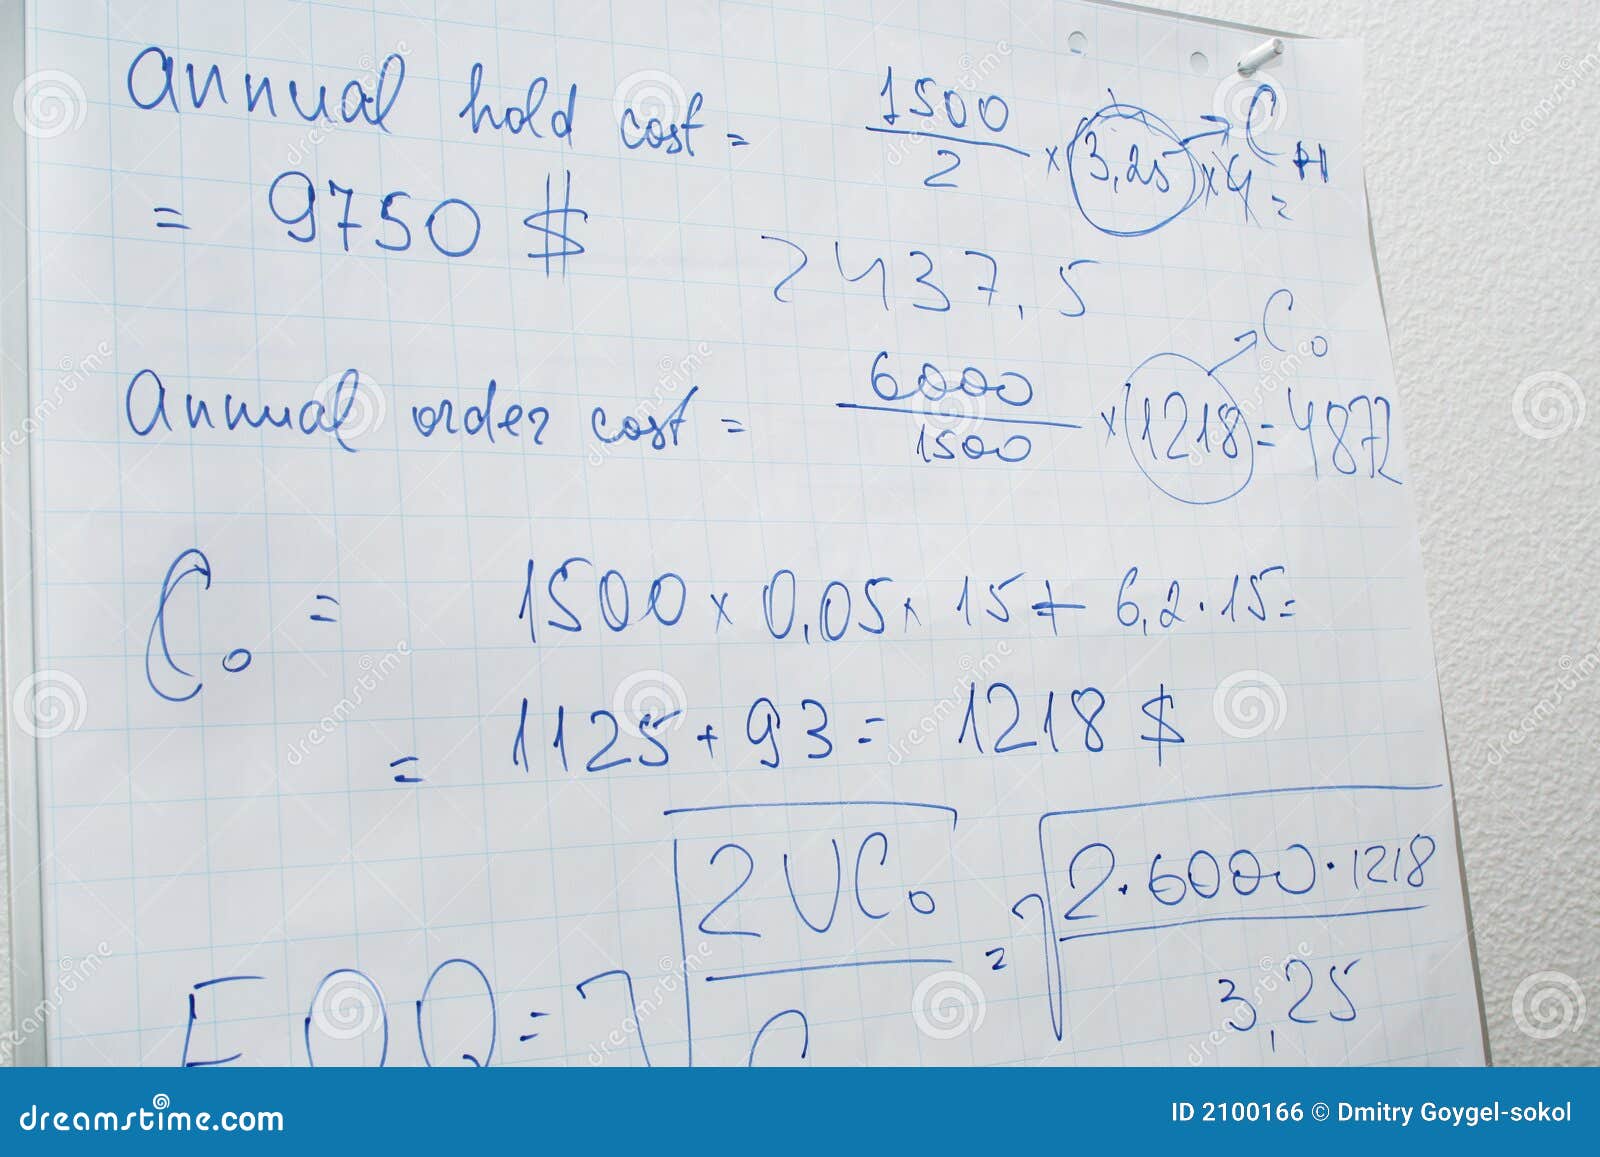 Annual hold cost = 1500/2 × 3,25 × 4 =
C H
= 9750 $
2437,5
C o
Annual order cost = 6000/1500 × 1218 = 4872
C o = 1500 × 0,05 × 15 + 6,2 · 15 =
= 1125 + 93 = 1218 $
EOQ = √ 2UC o / C = √ 2 · 6000 · 1218 / 3,25
dreamstime.com
ID 2100166 © Dmitry Goygel-sokol